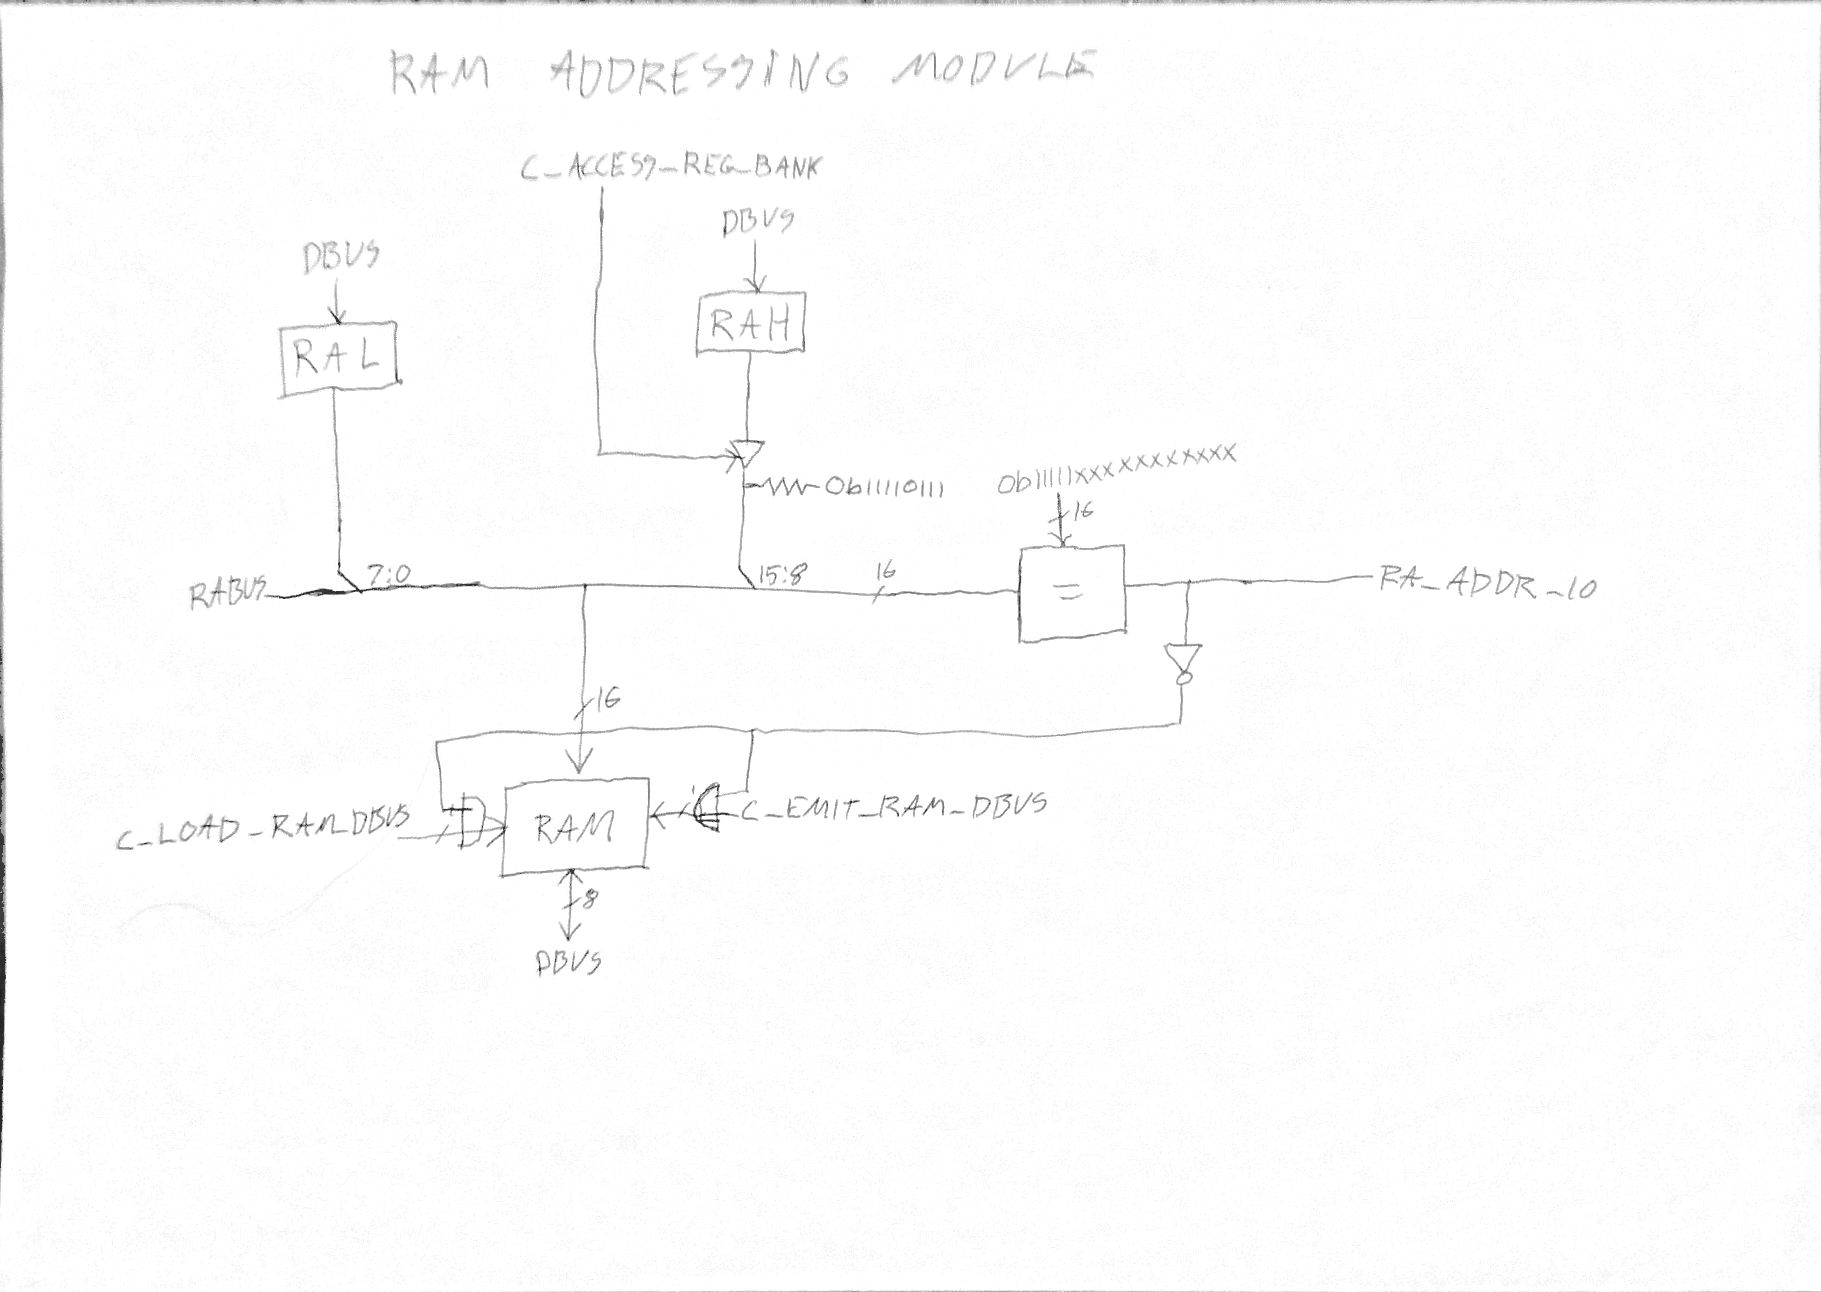 RAM ADDRESSING MODULE
C_ACCESS_REG_BANK
DBUS
DBUS
RAH
RAL
0b11111xxxxxxxxxxx
0b11110111
16
7:0
15:8
16
RABUS
=
RA_ADDR_IO
16
C_LOAD_RAM_DBUS
RAM
C_EMIT_RAM_DBUS
8
DBUS